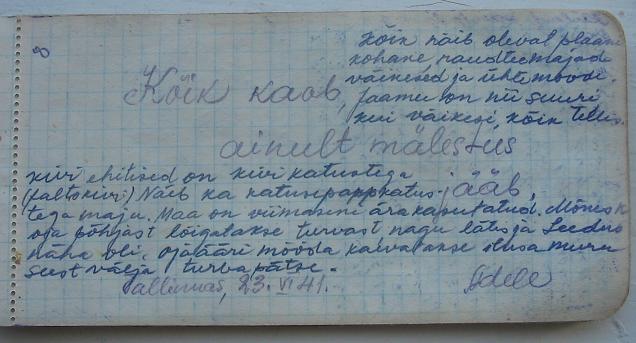 8
kõik näib olevat plaani
kohane, raudteemajad
väikesed ja ühtemoodi.
Jaamu on nii suuri
kui väikesi, kõik tellis-
Kõik kaob,
ainult mälestus
jääb,
kivi ehitised on kivi katustega
(faltskivi) Näib ka katusepappkatus-
tega maju. Maa on viimaseni ära kasutatud. Mõnes k
oja põhjast lõigatakse turvast nagu Lätis ja Leedus
näha oli, ojaääri mööda kaevatakse ilusa muru
seest välja turbapätse.
Tallinnas, 23. VI 41.
Adele